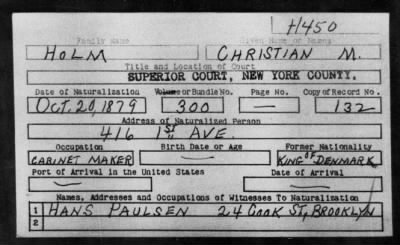 H450
Family Name Given Name or Names
HOLM CHRISTIAN M.
Title and Location of Court
SUPERIOR COURT, NEW YORK COUNTY.
Date of Naturalization Volume or Bundle No. Page No. Copy of Record No.
Oct. 20, 1879 300 — 132
Address of Naturalized Person
416 1ST AVE.
Occupation Birth Date or Age Former Nationality
CABINET MAKER — KING OF DENMARK
Port of Arrival in the United States Date of Arrival
— —
Names, Addresses and Occupations of Witnesses To Naturalization
1 HANS PAULSEN 24 COOK ST, BROOKLYN
2